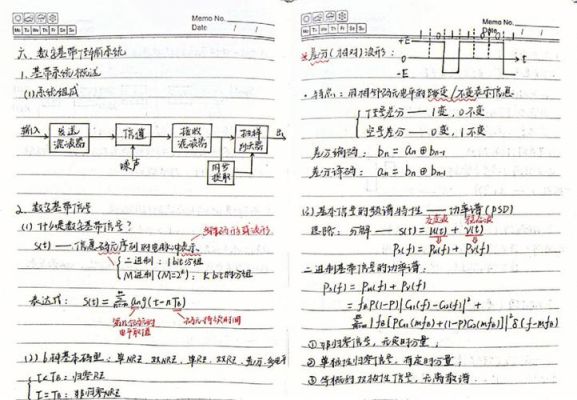 Memo No.
Date / /
Mo Tu We Th Fr Sa Su
六、数字基带传输系统
1. 基带系统概述
(1) 系统组成
输入 发送滤波器 信道 接收滤波器 抽样判决器 出
噪声 同步提取
2. 数字基带信号
(1) 什么是数字基带信号?
S(t) — 信息码元序列的电脉冲表示。
二进制: 1bit分组
M进制 (M=2^k): K bit的分组
表达式: S(t) = Σ a_n g(t-nT_B)
第n个码元的电平取值 码元持续时间
(2) 6种基本码型: 单NRZ, 双NRZ, 单RZ, 双RZ, 差分, 多电平
τ<T_B: 归零RZ
τ=T_B: 非归零NRZ
Memo No.
Date / /
Mo Tu We Th Fr Sa Su
+E
0
-E
t
*差分(相对)波形:
·特点: 用相邻码元电平的跳变/不变表示信息
T型号差分 —— 1变, 0不变
空号差分 —— 0变, 1不变
差分编码: b_n = a_n ⊕ b_n-1
差分译码: a_n = b_n ⊕ b_n-1
(3) 基本信号的频谱特性 —— 功率谱 (PSD)
交变波 稳态波
思路: 分解 — s(t) = u(t) + v(t)
P_s(f) = P_u(f) + P_v(f)
二进制基带信号的功率谱:
P_s(f) = P_u(f) + P_v(f)
= f_B P(1-P)|G_1(f)-G_2(f)|² +
Σ |f_B[PG_1(mf_B)+(1-P)G_2(mf_B)]|² δ(f-mf_B)
① 非归零信号, 无定时分量;
② 单极性归零信号, 有定时分量;
③ 等概的双极性信号, 无离散谱.